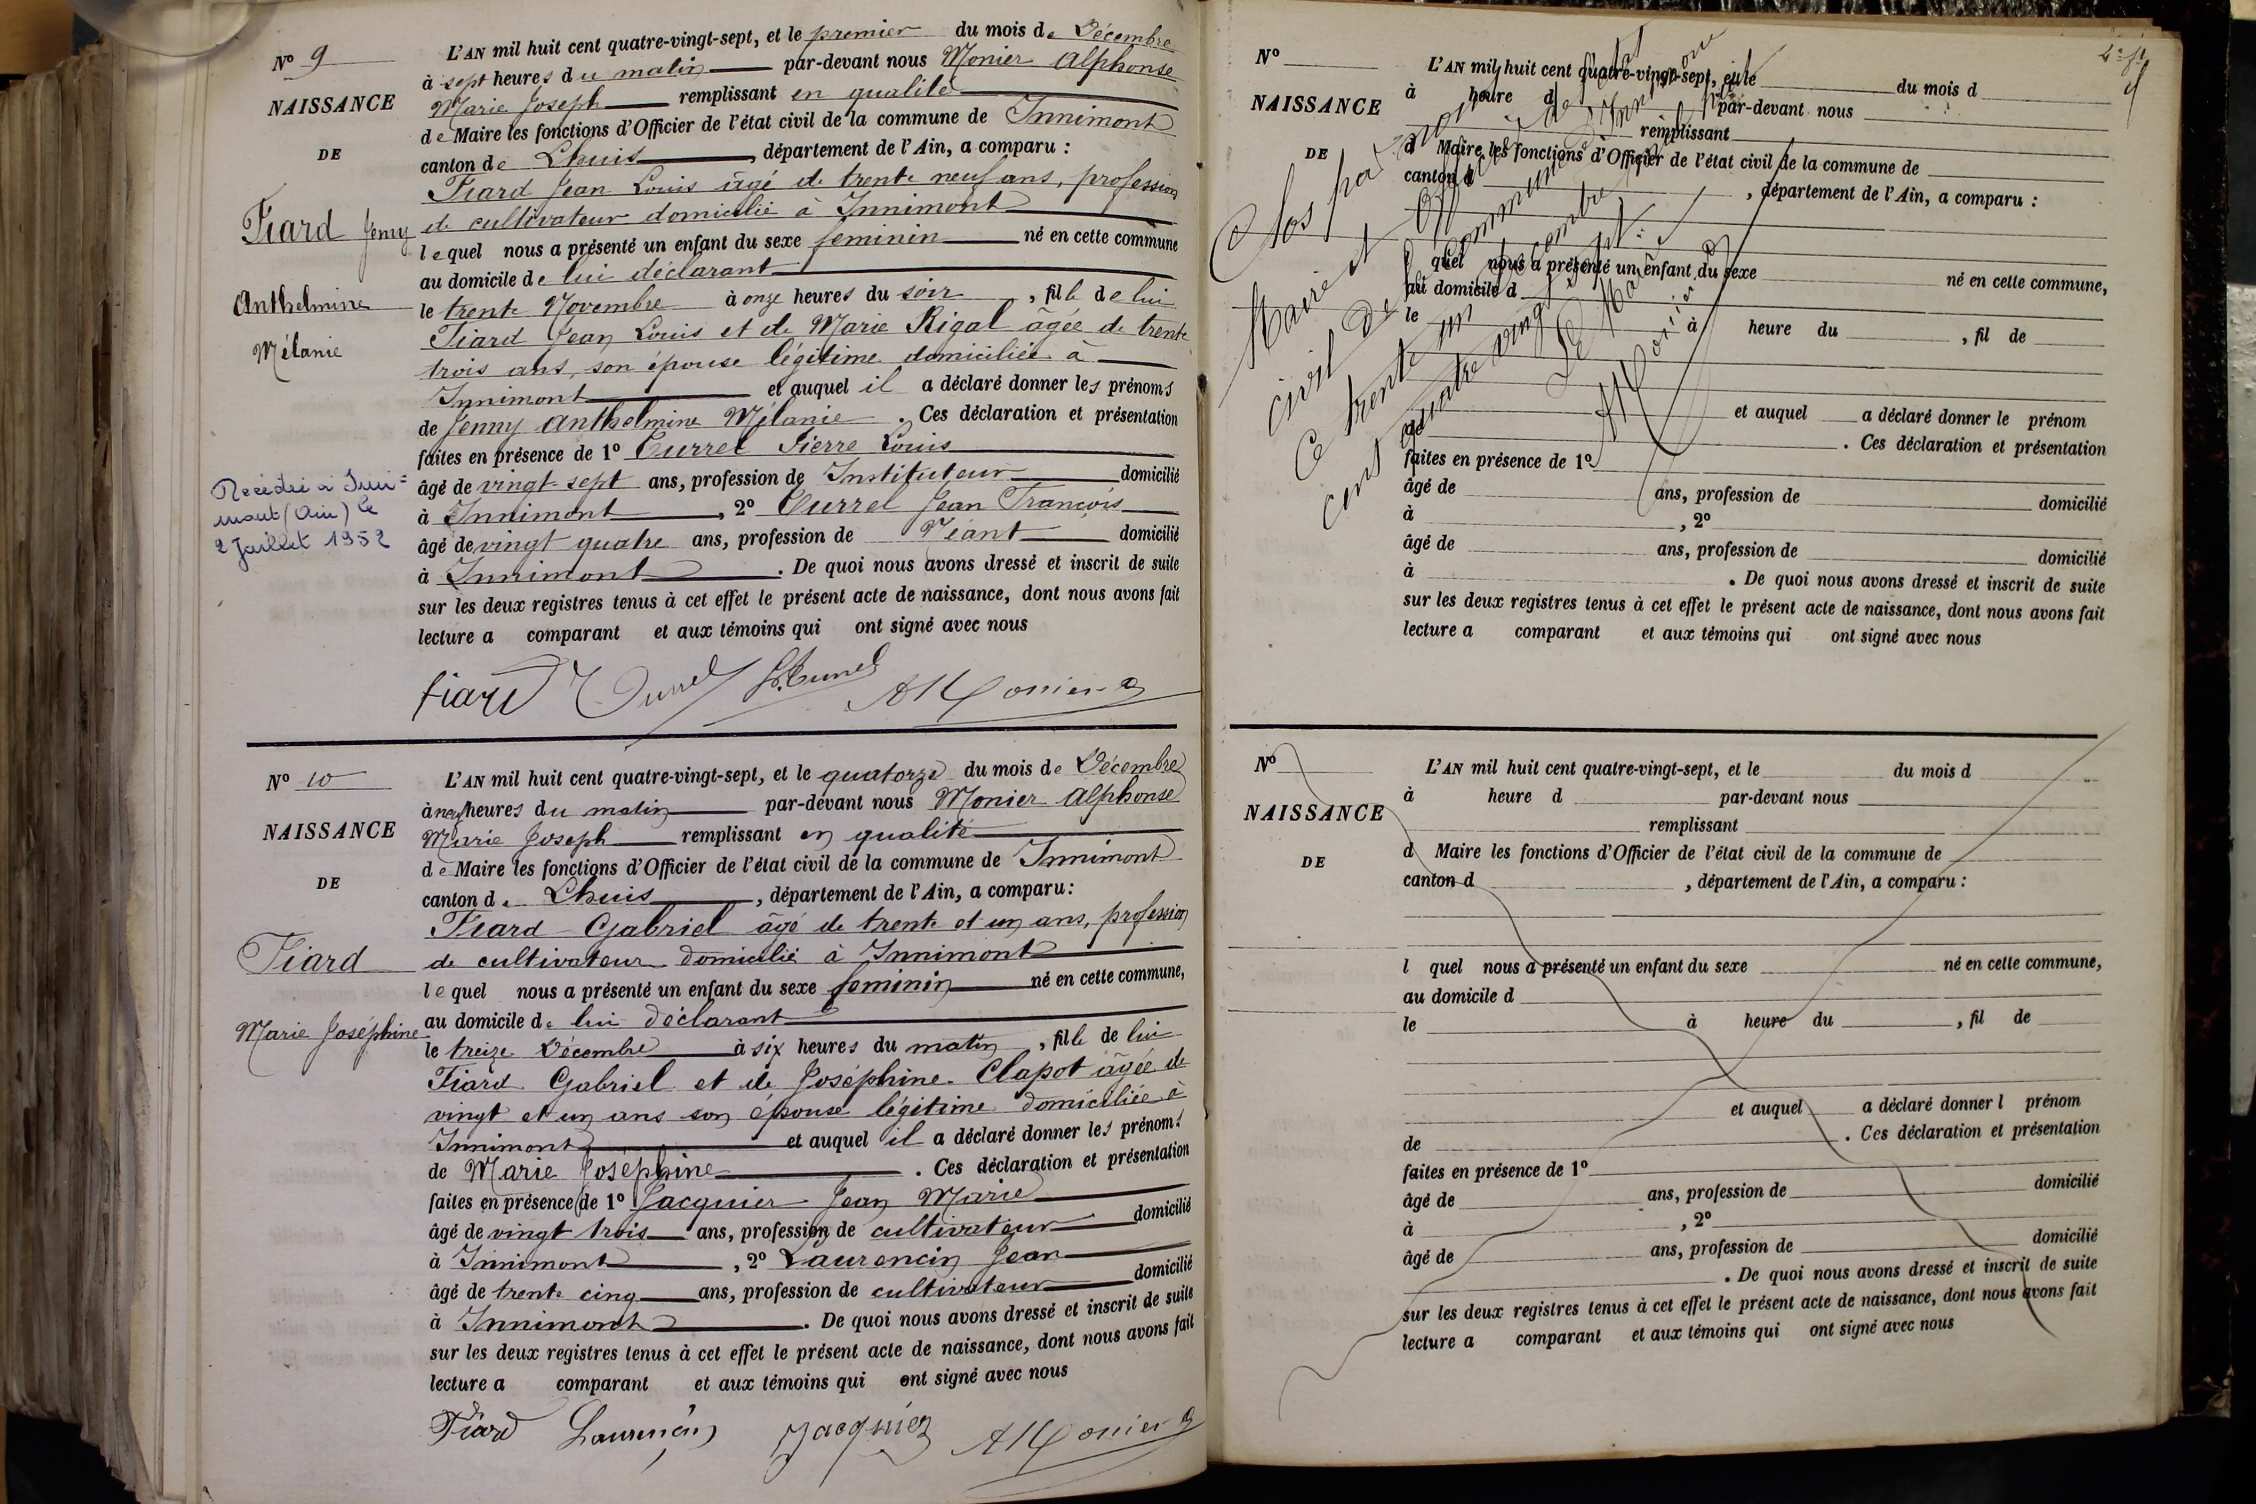 Nº 9
NAISSANCE
DE
Fiard Jenny
Anthelmine
Mélanie
Décédée à Inni=
mont (Ain) le
2 Juillet 1952
L'AN mil huit cent quatre-vingt-sept, et le premier du mois de Décembre
à sept heures du matin par-devant nous Monier Alphonse
Marie Joseph remplissant en qualité
de Maire les fonctions d'Officier de l'état civil de la commune de Innimont
canton de Lhuis, département de l'Ain, a comparu :
Fiard Jean Louis âgé de trente neuf ans, profession
de cultivateur domicilié à Innimont
lequel nous a présenté un enfant du sexe feminin né en cette commune
au domicile de lui déclarant
le trente Novembre à onze heures du soir, fille de lui
Fiard Jean Louis et de Marie Rigal âgée de trente
trois ans, son épouse légitime domiciliée à
Innimont et auquel il a déclaré donner les prénoms
de Jenny Anthelmine Mélanie. Ces déclaration et présentation
faites en présence de 1º Currel Pierre Louis
âgé de vingt-sept ans, profession de Instituteur domicilié
à Innimont, 2º Currel Jean François
âgé de vingt quatre ans, profession de Néant domicilié
à Innimont. De quoi nous avons dressé et inscrit de suite
sur les deux registres tenus à cet effet le présent acte de naissance, dont nous avons fait
lecture a comparant et aux témoins qui ont signé avec nous
fiard AMonier
Nº 10
NAISSANCE
DE
Fiard
Marie Joséphine
L'AN mil huit cent quatre-vingt-sept, et le quatorze du mois de Décembre
à neuf heures du matin par-devant nous Monier Alphonse
Marie Joseph remplissant en qualité
de Maire les fonctions d'Officier de l'état civil de la commune de Innimont
canton de Lhuis, département de l'Ain, a comparu :
Fiard Gabriel âgé de trente et un ans, profession
de cultivateur domicilié à Innimont
lequel nous a présenté un enfant du sexe feminin né en cette commune,
au domicile de lui déclarant
le treize Décembre à six heures du matin, fille de lui
Fiard Gabriel et de Joséphine Clapot âgée de
vingt et un ans son épouse légitime domiciliée à
Innimont et auquel il a déclaré donner les prénoms
de Marie Joséphine. Ces déclaration et présentation
faites en présence de 1º Jacquier Jean Marie
âgé de vingt trois ans, profession de cultivateur domicilié
à Innimont, 2º Laurencin Jean
âgé de trente cinq ans, profession de cultivateur domicilié
à Innimont. De quoi nous avons dressé et inscrit de suite
sur les deux registres tenus à cet effet le présent acte de naissance, dont nous avons fait
lecture a comparant et aux témoins qui ont signé avec nous
Fiard Laurencin Jacquier AMonier
Nº
NAISSANCE
DE
L'AN mil huit cent quatre-vingt-sept, et le du mois d
à heure d par-devant nous
remplissant
d Maire les fonctions d'Officier de l'état civil de la commune de
canton d , département de l'Ain, a comparu :
l quel nous a présenté un enfant du sexe né en cette commune,
au domicile d
le à heure du , fil de
et auquel a déclaré donner le prénom
de . Ces déclaration et présentation
faites en présence de 1º
âgé de ans, profession de domicilié
à , 2º
âgé de ans, profession de domicilié
à . De quoi nous avons dressé et inscrit de suite
sur les deux registres tenus à cet effet le présent acte de naissance, dont nous avons fait
lecture a comparant et aux témoins qui ont signé avec nous
Clos par nous
Maire et Officier de l'état
civil de la commune d'Innimont
Ce trente un Décembre mil huit
cent quatre vingt sept.
Le Maire
AMonier
Nº
NAISSANCE
DE
L'AN mil huit cent quatre-vingt-sept, et le du mois d
à heure d par-devant nous
remplissant
d Maire les fonctions d'Officier de l'état civil de la commune de
canton d , département de l'Ain, a comparu :
l quel nous a présenté un enfant du sexe né en cette commune,
au domicile d
le à heure du , fil de
et auquel a déclaré donner l prénom
de . Ces déclaration et présentation
faites en présence de 1º
âgé de ans, profession de domicilié
à , 2º
âgé de ans, profession de domicilié
. De quoi nous avons dressé et inscrit de suite
sur les deux registres tenus à cet effet le présent acte de naissance, dont nous avons fait
lecture a comparant et aux témoins qui ont signé avec nous